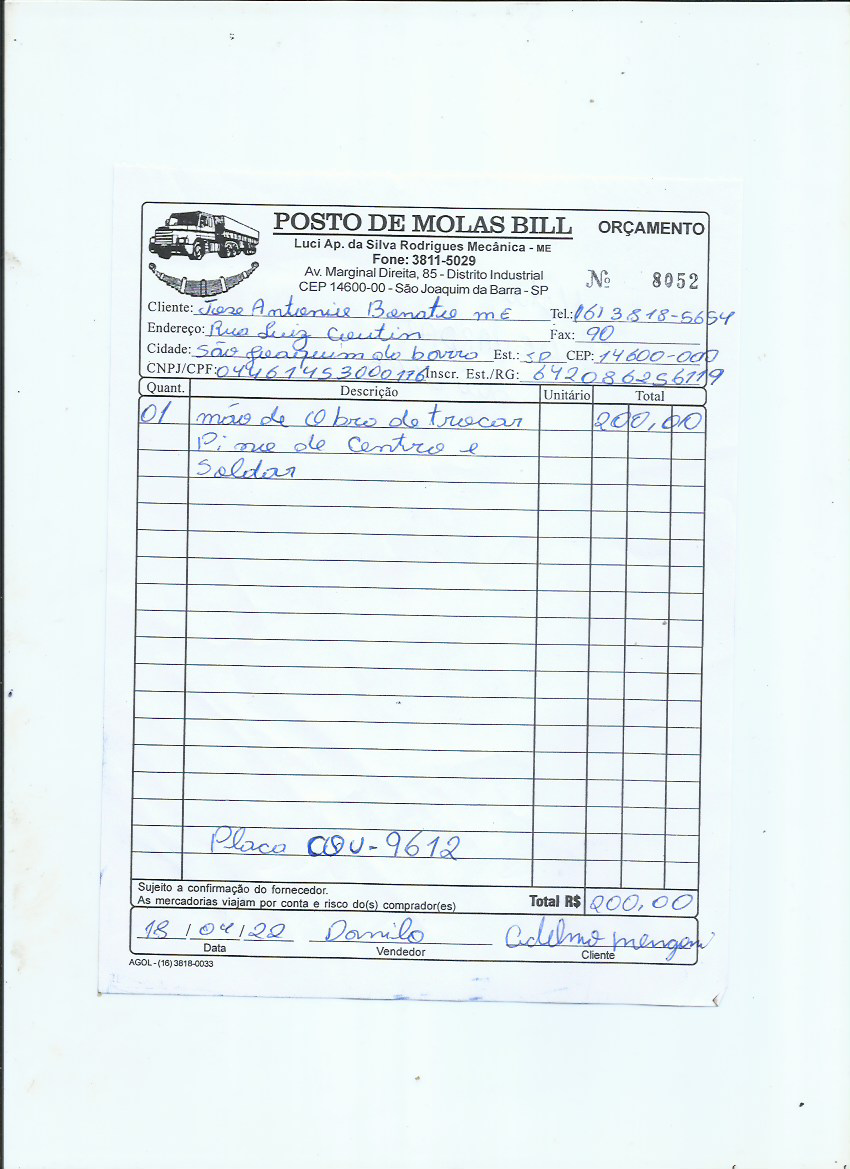 POSTO DE MOLAS BILL
ORÇAMENTO
Luci Ap. da Silva Rodrigues Mecânica - ME
Fone: 3811-5029
Av. Marginal Direita, 85 - Distrito Industrial
CEP 14600-00 - São Joaquim da Barra - SP
Nº 8052
Cliente: Jose Antonio Bonato ME Tel.: (16) 3818-5654
Endereço: Rua Luiz Fax: 90
Cidade: São Joaquim da barra Est.: SP CEP: 14600-000
CNPJ/CPF: 04461453000116 Inscr. Est./RG: 642086256119
Quant. Descrição Unitário Total
01 mão de Obra de trocar 200,00
Pi no de Centro e
Soldar
Placa COU-9612
Sujeito a confirmação do fornecedor.
As mercadorias viajam por conta e risco do(s) comprador(es)
Total R$ 200,00
18 / 04 / 22 Danilo Adelmo
Data Vendedor Cliente
AGOL - (16) 3818-0033